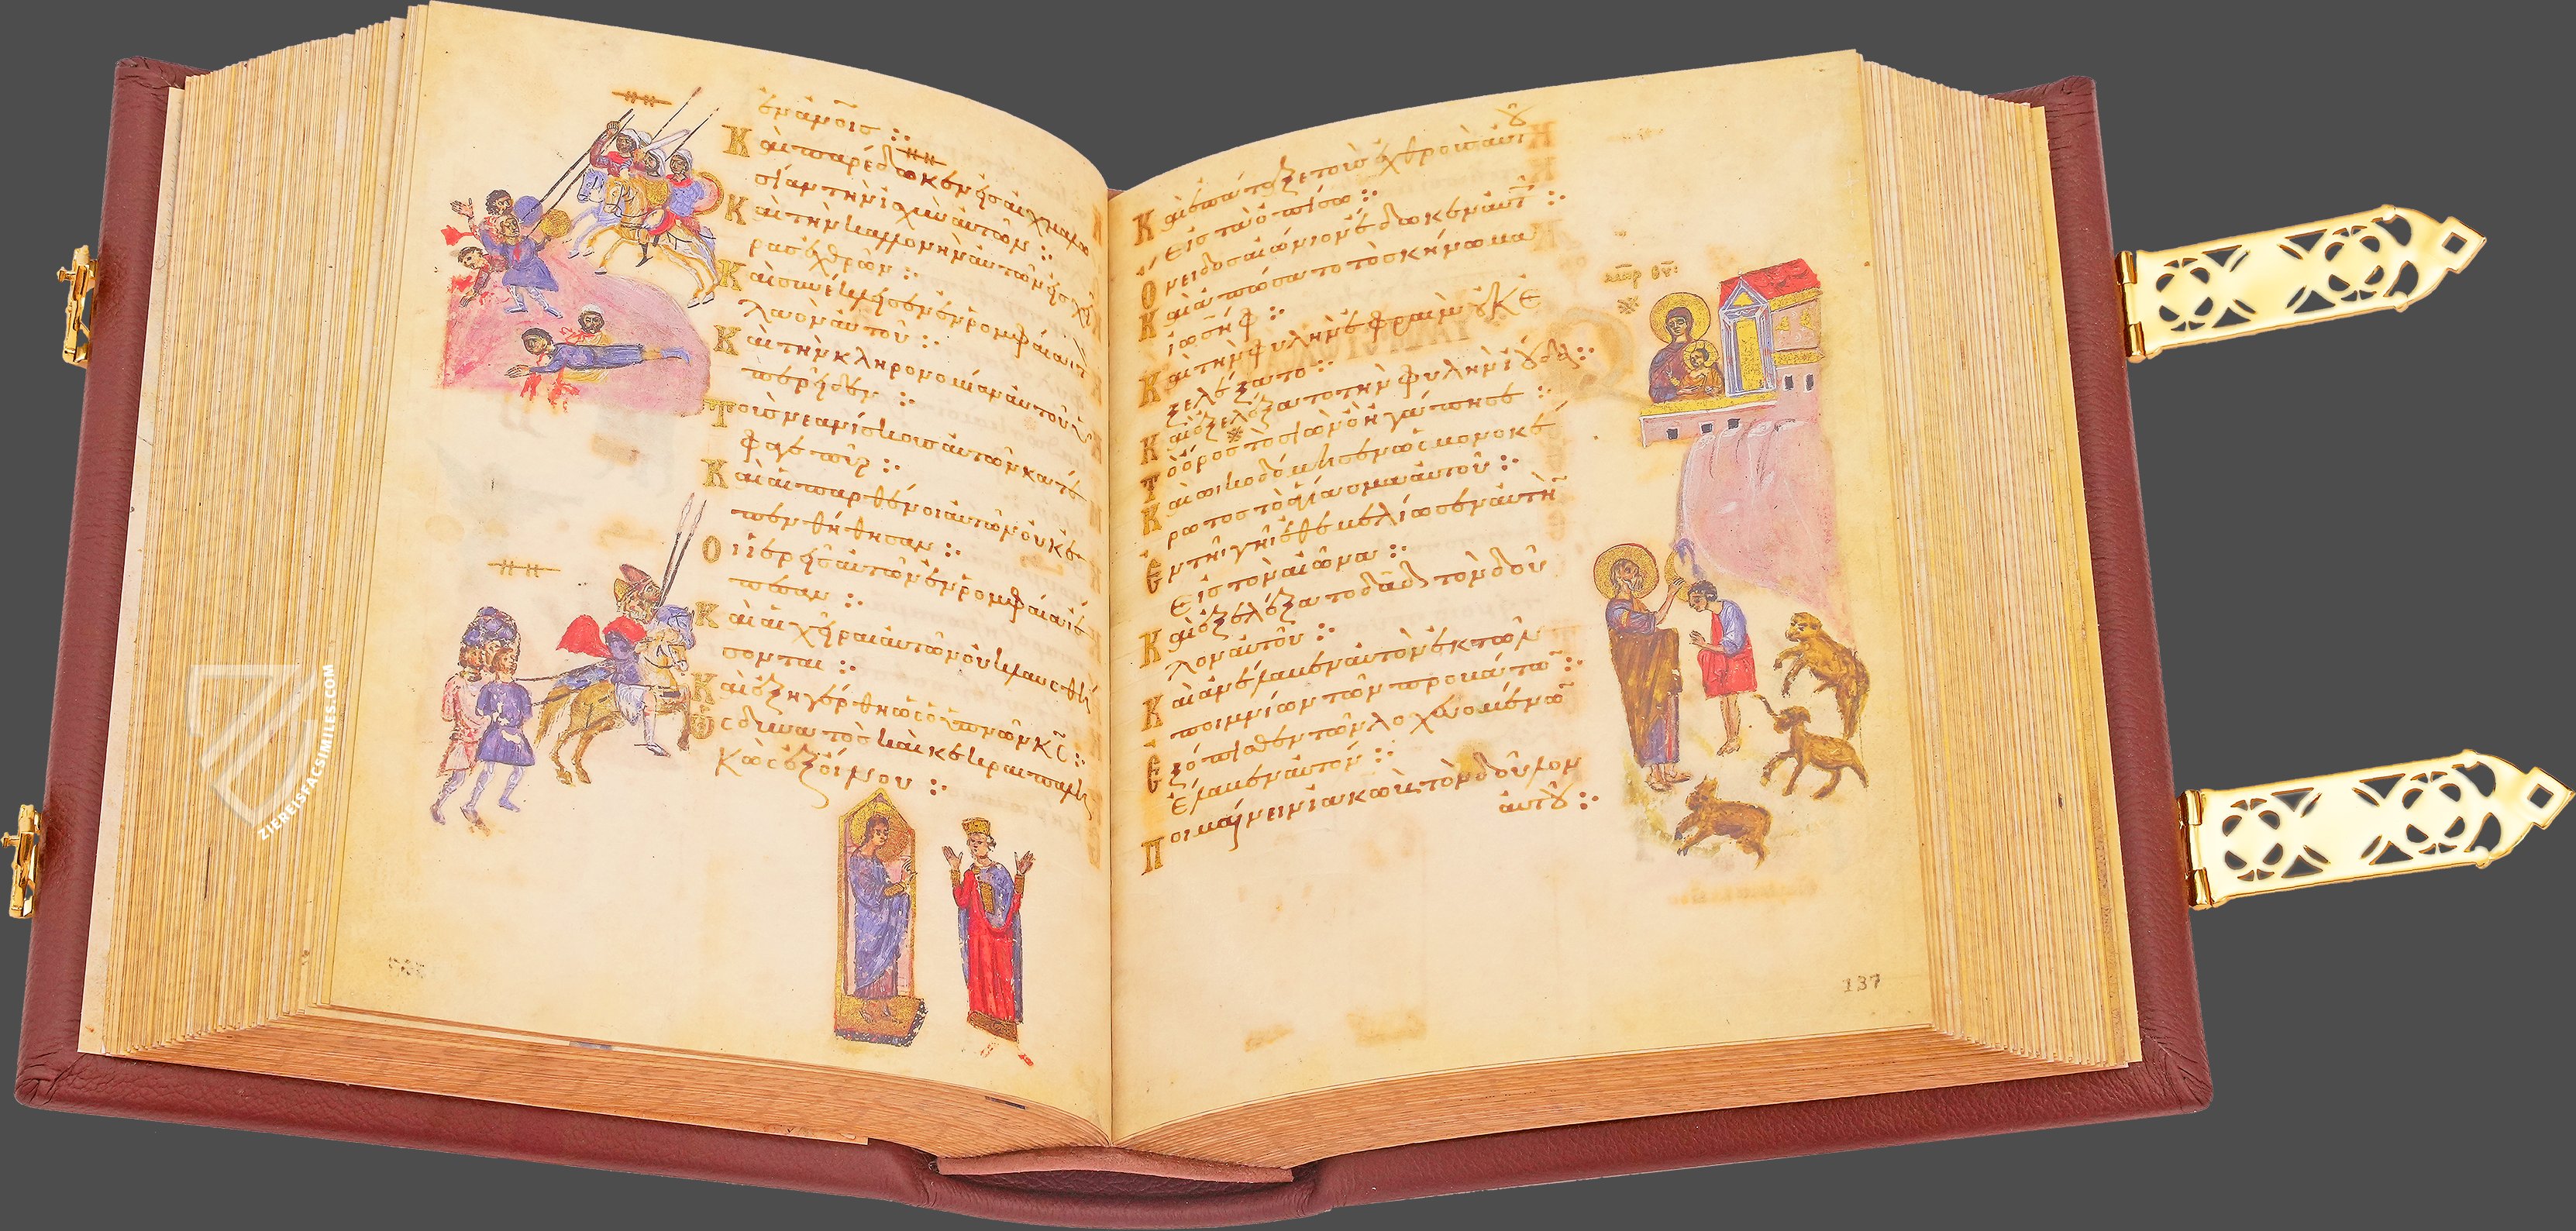 ἐν ἀνοις :·
Καὶ παρέδωκεν εἰς αἰχμαλω
σίαν τὴν ἰσχὺν αὐτῶν :·
Καὶ τὴν καλλονὴν αὐτῶν εἰς χεῖ
ρας ἐχθρῶν :·
Καὶ συνέκλεισεν ἐν ρομφαία τὸν
λαὸν αὐτοῦ :·
Καὶ τὴν κληρονομίαν αὐτοῦ ὑ
περεῖδεν :·
Τοὺς νεανίσκους αὐτῶν κατέ
φαγε πῦρ :·
Καὶ αἱ παρθένοι αὐτῶν οὐκ ἐ
πενθήθησαν :·
Οἱ ἱερεῖς αὐτῶν ἐν ρομφαία ἔ
πεσαν :·
Καὶ αἱ χῆραι αὐτῶν οὐ κλαυσθή
σονται :·
Καὶ ἐξηγέρθη ὡς ὁ ὑπνῶν κς :·
Ὡς δυνατὸς καὶ κεκραιπαλη
κὼς ἐξ οἴνου :·
ZIEREISFACSIMILES.COM
Καὶ ἐπάταξε τοὺς ἐχθροὺς αὐτοῦ
εἰς τὰ ὀπίσω :·
Ὄνειδος αἰώνιον ἔδωκεν αὐτοῖς :·
Καὶ ἀπώσατο τὸ σκήνωμα
ἰωσήφ :·
Καὶ τὴν φυλὴν ἐφραὶμ οὐκ ἐ
ξελέξατο :·
Καὶ ἐξελέξατο τὴν φυλὴν ἰούδα :·
Τὸ ὄρος τὸ σιὼν ὃ ἠγάπησε :·
Καὶ ὠκοδόμησεν ὡς μονοκέ
ρωτος τὸ ἁγίασμα αὐτοῦ :·
Ἐν τῆ γῆ ἐθεμελίωσεν αὐτὴν
εἰς τὸν αἰῶνα :·
Καὶ ἐξελέξατο δαδ τὸν δοῦ
λον αὐτοῦ :·
Καὶ ἀνέλαβεν αὐτὸν ἐκ τῶν
ποιμνίων τῶν προβάτων :·
Ἐξόπισθεν τῶν λοχευομένων
ἔλαβεν αὐτόν :·
Ποιμαίνειν ἰακὼβ τὸν δοῦλον
αὐτοῦ :·
μηρ θυ
137